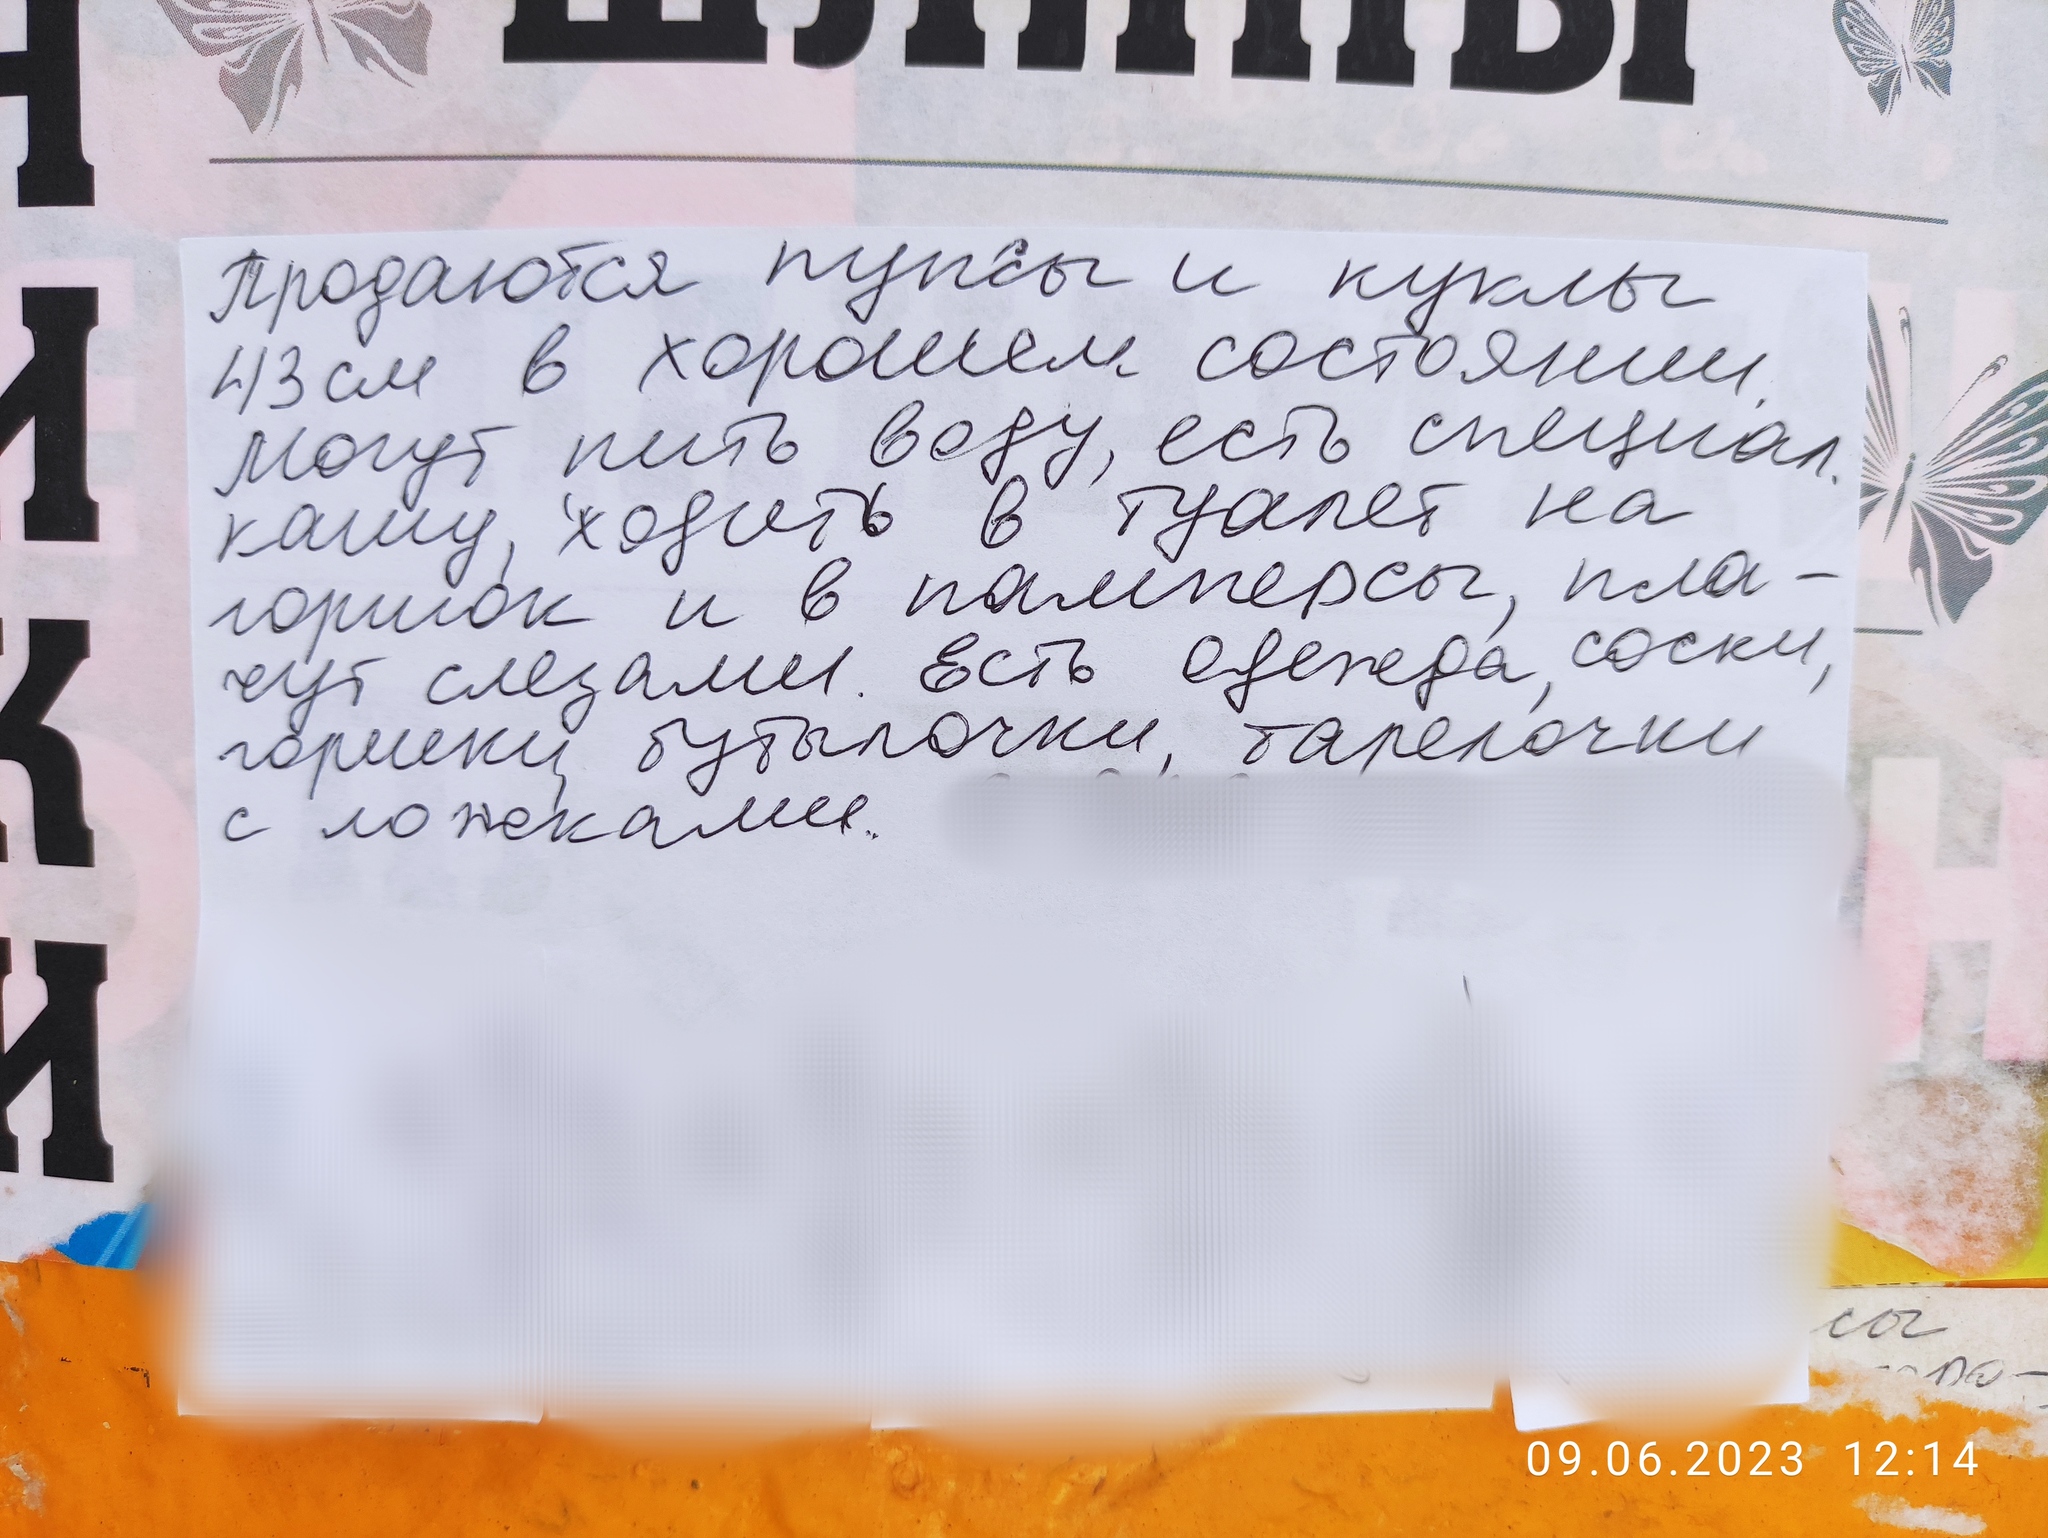 Продаются пупсы и куклы
43 см в хорошем состоянии.
Могут пить воду, есть специал.
кашу, ходить в туалет на
горшок и в памперсы, пла-
чут слезами. Есть одежда, соски,
горшки, бутылочки, тарелочки
с ложками.
сы
09.06.2023 12:14